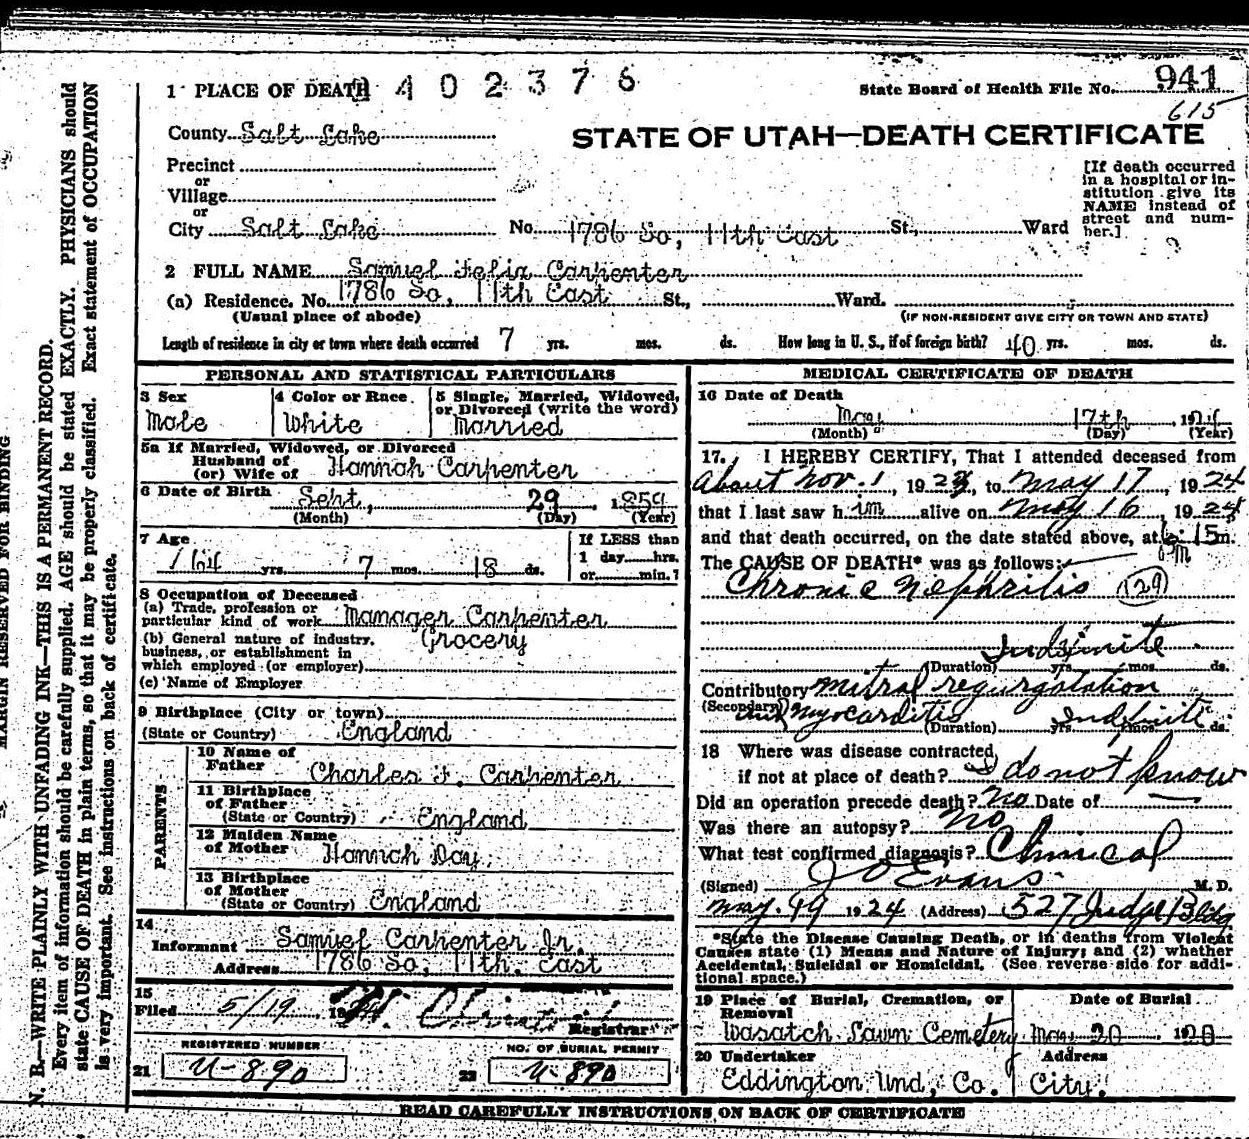 1 PLACE OF DEATH 2402376
State Board of Health File No. 941
615
County Salt Lake
STATE OF UTAH—DEATH CERTIFICATE
Precinct
or
Village
or
City Salt Lake No. 1786 So, 11th East St., Ward
[If death occurred
in a hospital or in-
stitution give its
NAME instead of
street and num-
ber.]
2 FULL NAME Samuel Felix Carpenter
(a) Residence. No. 1786 So, 11th East St., Ward.
(Usual place of abode) (IF NON-RESIDENT GIVE CITY OR TOWN AND STATE)
Length of residence in city or town where death occurred 7 yrs. mos. ds. How long in U. S., if of foreign birth? 40 yrs. mos. ds.
PERSONAL AND STATISTICAL PARTICULARS
3 Sex
Male
4 Color or Race
White
5 Single, Married, Widowed,
or Divorced (write the word)
Married
5a If Married, Widowed, or Divorced
Husband of
(or) Wife of Hannah Carpenter
6 Date of Birth Sept, 29, 1859
(Month) (Day) (Year)
7 Age
64 yrs. 7 mos. 18 ds.
If LESS than
1 day hrs.
or min.?
8 Occupation of Deceased
(a) Trade, profession or
particular kind of work Manager Carpenter
(b) General nature of industry, Grocery
business, or establishment in
which employed (or employer)
(c) Name of Employer
9 Birthplace (City or town)
(State or Country) England
PARENTS
10 Name of
Father Charles F. Carpenter
11 Birthplace
of Father
(State or Country) England
12 Maiden Name
of Mother Hannah Day
13 Birthplace
of Mother
(State or Country) England
14
Informant Samuel Carpenter Jr.
Address 1786 So, 11th. East
15
Filed 5/19
Registrar
REGISTERED NUMBER
21 U-890
NO. OF BURIAL PERMIT
22 U-890
MEDICAL CERTIFICATE OF DEATH
16 Date of Death
May 17th, 1924
(Month) (Day) (Year)
17. I HEREBY CERTIFY, That I attended deceased from
About Nov. 1, 1923, to May 17, 1924
that I last saw him alive on May 16, 1924
and that death occurred, on the date stated above, at 6:15 m.
P M
The CAUSE OF DEATH* was as follows:
Chronic Nephritis (129)
Indefinite
(Duration) yrs. mos. ds.
Contributory mitral regurgatation
(Secondary) and myocarditis
(Duration) Indefinite yrs. mos. ds.
18 Where was disease contracted
if not at place of death? I do not know
Did an operation precede death? No Date of —
Was there an autopsy? No
What test confirmed diagnosis? Clinical
(Signed) J O Evans M. D.
May. 19 1924 (Address) 527 Judge Bldg
*State the Disease Causing Death, or in deaths from Violent
Causes state (1) Means and Nature of Injury; and (2) whether
Accidental, Suicidal or Homicidal. (See reverse side for addi-
tional space.)
19 Place of Burial, Cremation, or
Removal
Wasatch Lawn Cemetery
Date of Burial
May 20 1920
20 Undertaker
Eddington Und, Co.
Address
City.
READ CAREFULLY INSTRUCTIONS ON BACK OF CERTIFICATE
MARGIN RESERVED FOR BINDING
N. B.—WRITE PLAINLY WITH UNFADING INK—THIS IS A PERMANENT RECORD.
Every item of information should be carefully supplied. AGE should be stated EXACTLY. PHYSICIANS should
state CAUSE OF DEATH in plain terms, so that it may be properly classified. Exact statement of OCCUPATION
is very important. See instructions on back of certificate.